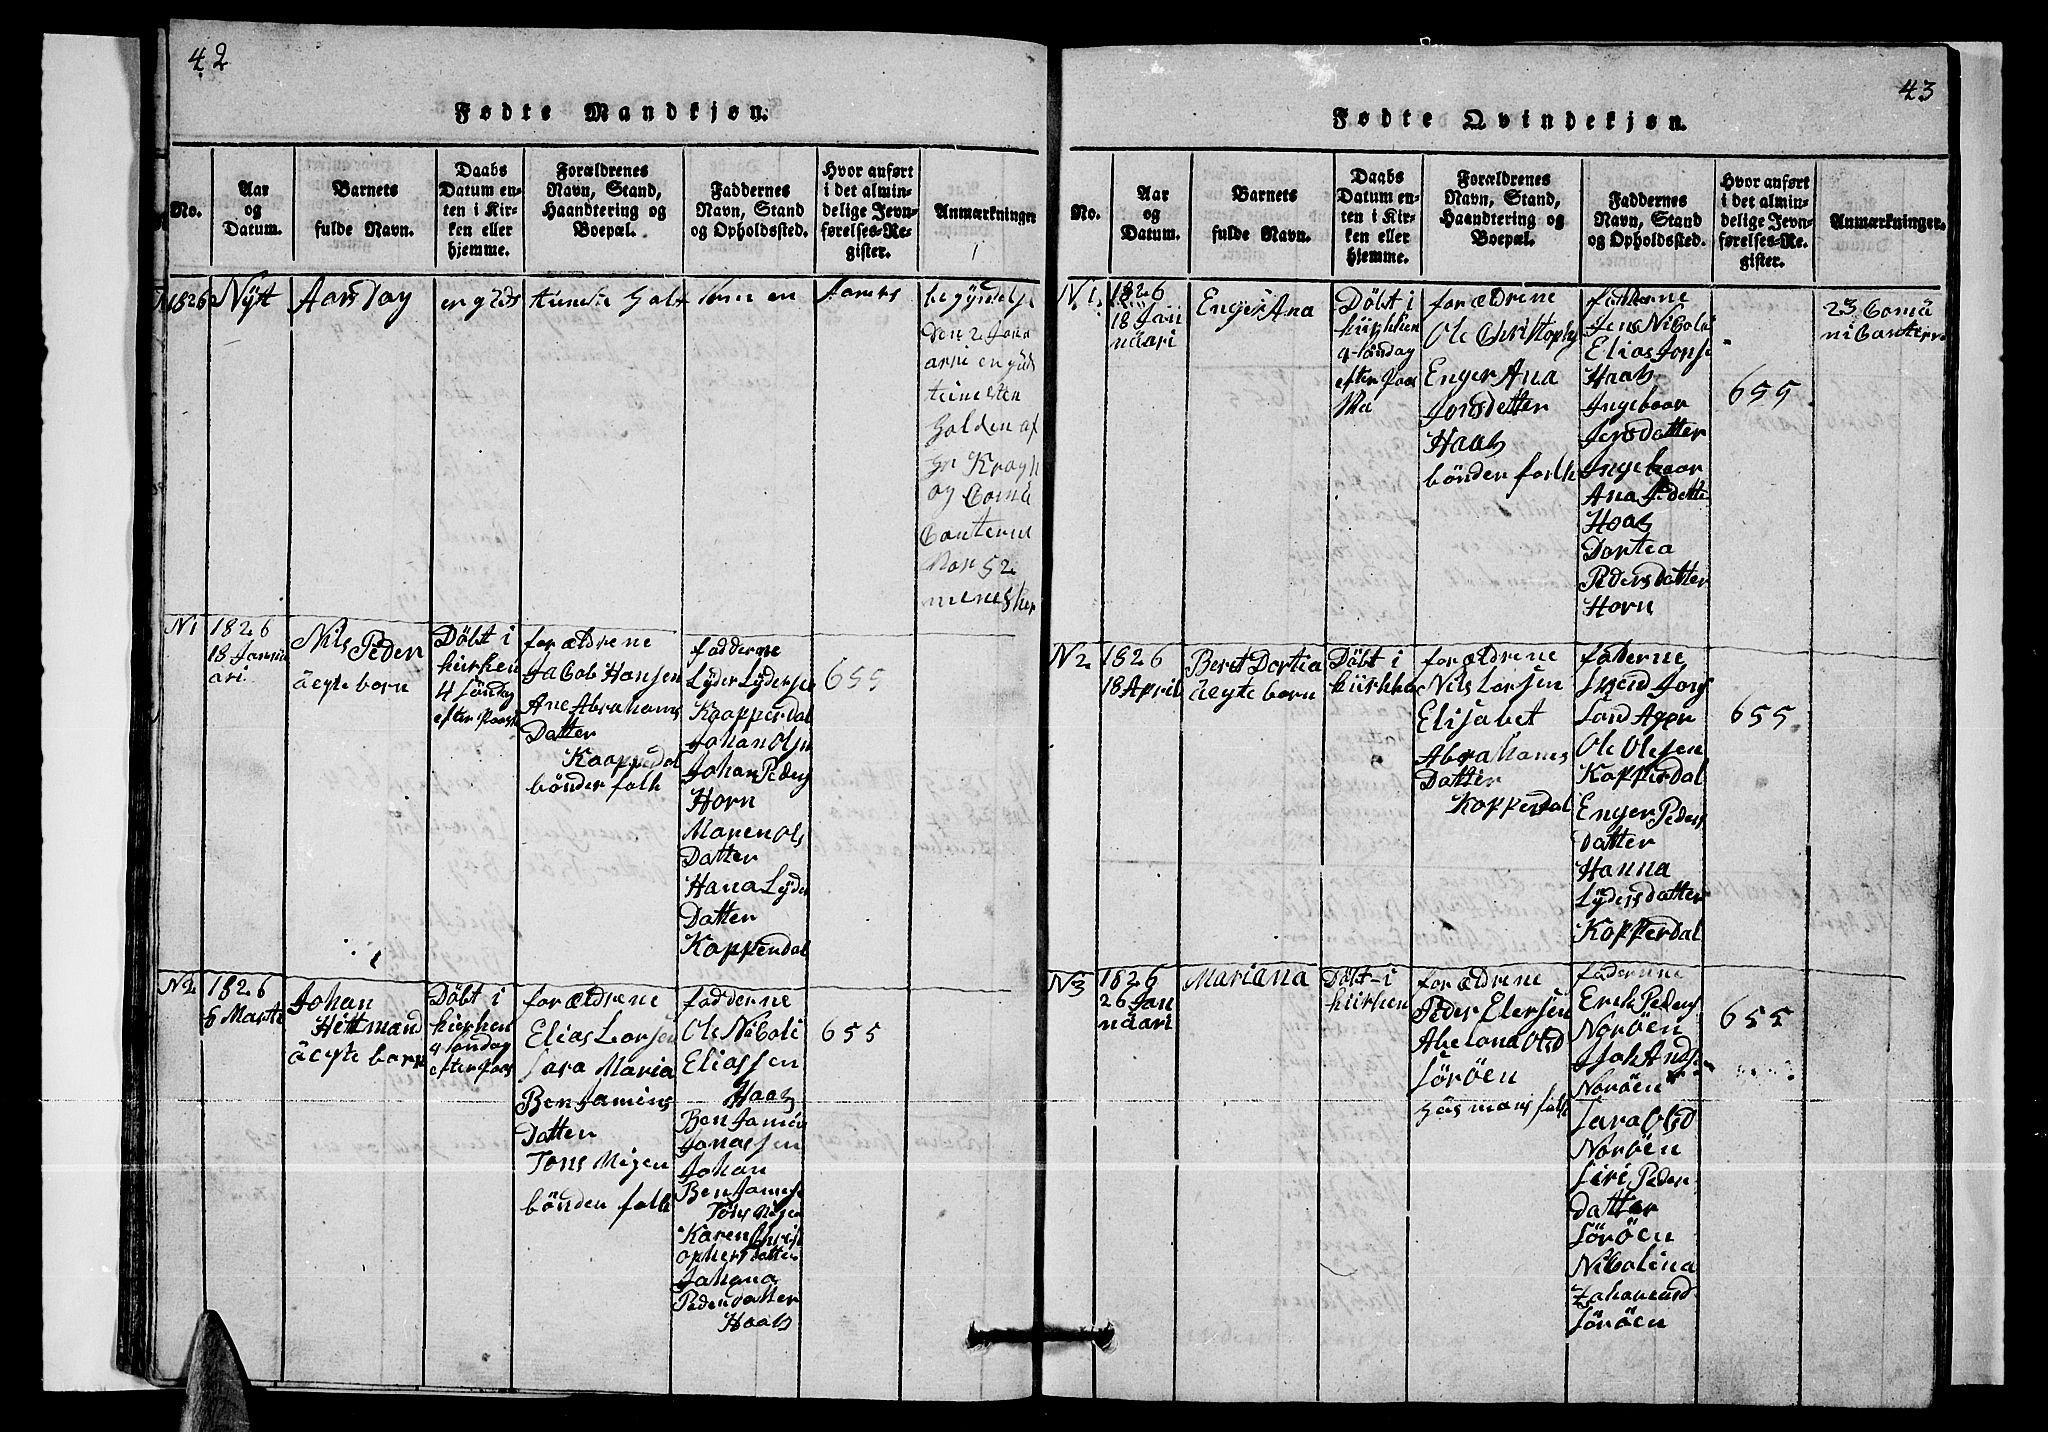 42
Fødte Mandkjøn.
No.
Aar
og
Datum.
Barnets
fulde Navn.
Daabs
Datum en-
ten i Kir-
ken eller
hjemme.
Forældrenes
Navn, Stand,
Haandtering og
Boepæl.
Faddernes
Navn, Stand
og Opholdssted.
Hvor anført
i det almin-
delige Jevn-
førelses-Re-
gister.
Anmærkninger
1826 Nÿtt Aars Dag er guds tieneste holt som en Aarets
begÿndelse
den 2 Janu
arii en guds
tienesten
holden af
hr Krogh
og Comu
Canterne
Var 52
menesker
N1
1826
18 Janu
ari
Nils Peder
äegte born
Döbt i
kirken
4 Söndag
efter Paaske
forældrene
Jacob Hansen
Ane Abrahams
Datter
Kaapperdal
bönder folk
fadderne
Lÿder Lÿdersen
Kaapperdal
Johan Olsen
Johan Peders
Horn
Maren Ols
Datter
Hana Lÿder
Datter
Kopperdal
655
N2
1826
8 Marti
Johan
Hittmand
äegte born
Döbt i
kirken
4 Söndag
efter Paas
forældrene
Elias Larsen
Sara Maria
Benjamins
Datter
Tens Vigen
bönder folk
fadderne
Ole Nicoli
Eliassen
Haab
Benjamin
Jonassen
Johan
Benjamse
Tens Vigen
Karen Christ
ophers Datter
Johana
Pederdatter
Haab
655
43
Fødte Qvindekjøn.
No.
Aar
og
Datum.
Barnets
fulde Navn.
Daabs
Datum en-
ten i Kir-
ken eller
hjemme.
Forældrenes
Navn, Stand,
Haandtering og
Boepæl.
Faddernes
Navn, Stand
og Opholdssted.
Hvor anført
i det almin-
delige Jevn-
førelses-Re-
gister.
Anmærkninger.
N1.
1826
18 Jan
uari
Enger Ana
Döbt i
kirken
4 Söndag
efter Paa
ske
forældrene
Ole Christoph
Enger Ana
Jonsdatter
Haab
bönder folk
fadderne
Jens Nicolai
Elias Jonse
Haab
Ingebaar
Jensdatter
Ingebaar
Ana Pedatte
Haab
Dortea
Pedersdatter
Horn
655
23 Comu
nicanter
N2
1826
18 April
Beret Dortea
äegte born
Döbt i
kirken
forældrene
Nils Larsen
Elisabet
Abrahams
Datter
Kopperdal
faderne
Svend Jons
Sand Ager
Ole Olesen
Kopperdal
Enger Peders
Datter
Hanna
Lÿdersdatter
Kopperdal
655
N3
1826
26 Jan
uari
Mariana
Döbt i
kirken
forældrene
Peder Elersen
Abelona Olsd
Söröen
Husmans folk
faderne
Erik Peders
Noröen
Joh Ands
Noröen
Sara Olsd
Noröen
Siri Peders
datter
Söröen
Nicolina
Zakariasd
Söröen
655